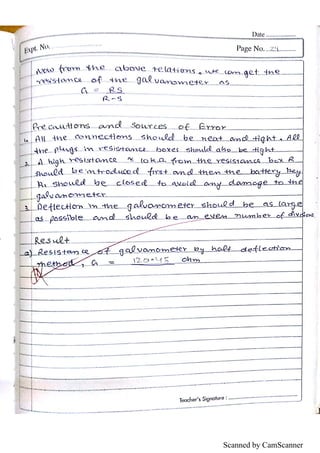 Date
Expt. No.
Page No. 24
Now from the above relations, we can get the
resistance of the galvanometer as
G = RS
R-S
Precautions and Sources of Error
1. All the connections should be neat and tight. All
the plugs in resistance boxes should also be tight
2. A high resistance from the resistance box R
should be introduced first and then the battery key
K1 should be closed to avoid any damage to the
galvanometer
3. Deflection in the galvanometer should be as large
as possible and should be an even number of division
Result
a) Resistance of galvanometer by half deflection
method, G = 120.45 ohm
Teacher's Signature :
Scanned by CamScanner